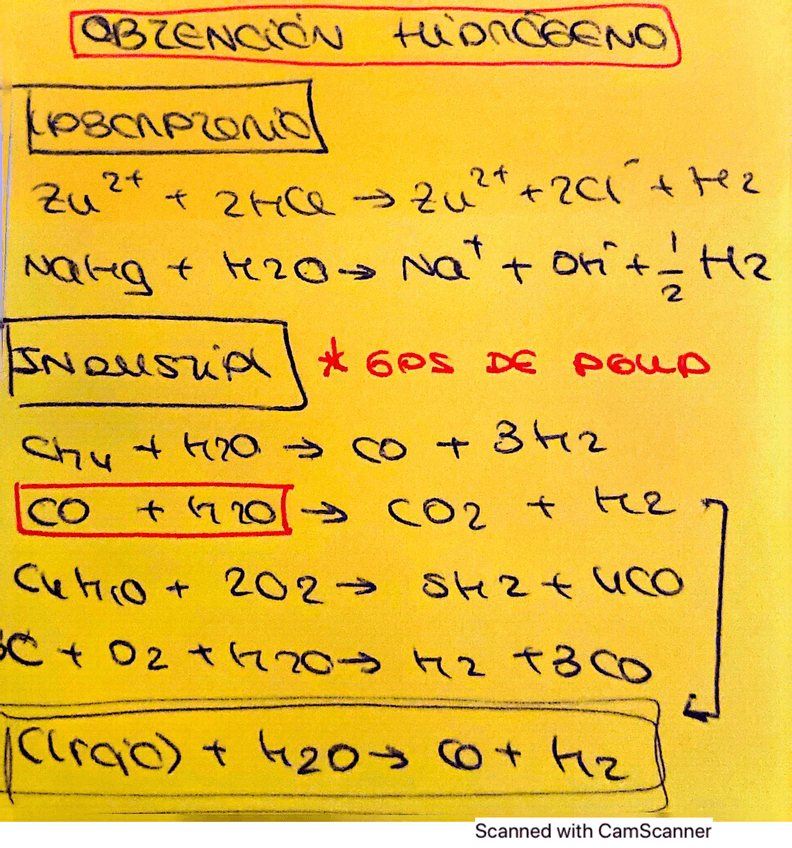 OBTENCIÓN HIDRÓGENO
LABORATORIO
Zn²⁺ + 2HCl → Zn²⁺ + 2Cl⁻ + H2
NaHg + H2O → Na⁺ + OH⁻ + 1/2 H2
INDUSTRIA * GAS DE AGUA
CH4 + H2O → CO + 3H2
CO + H2O → CO2 + H2
C4H10 + 2O2 → 5H2 + 4CO
3C + O2 + H2O → H2 + 3CO
C(rojo) + H2O → CO + H2
Scanned with CamScanner